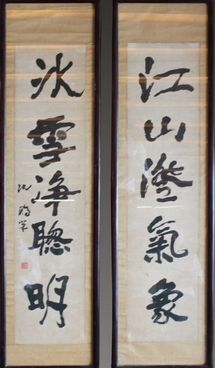 江山澄氣象
冰雪淨聰明
沈鵬